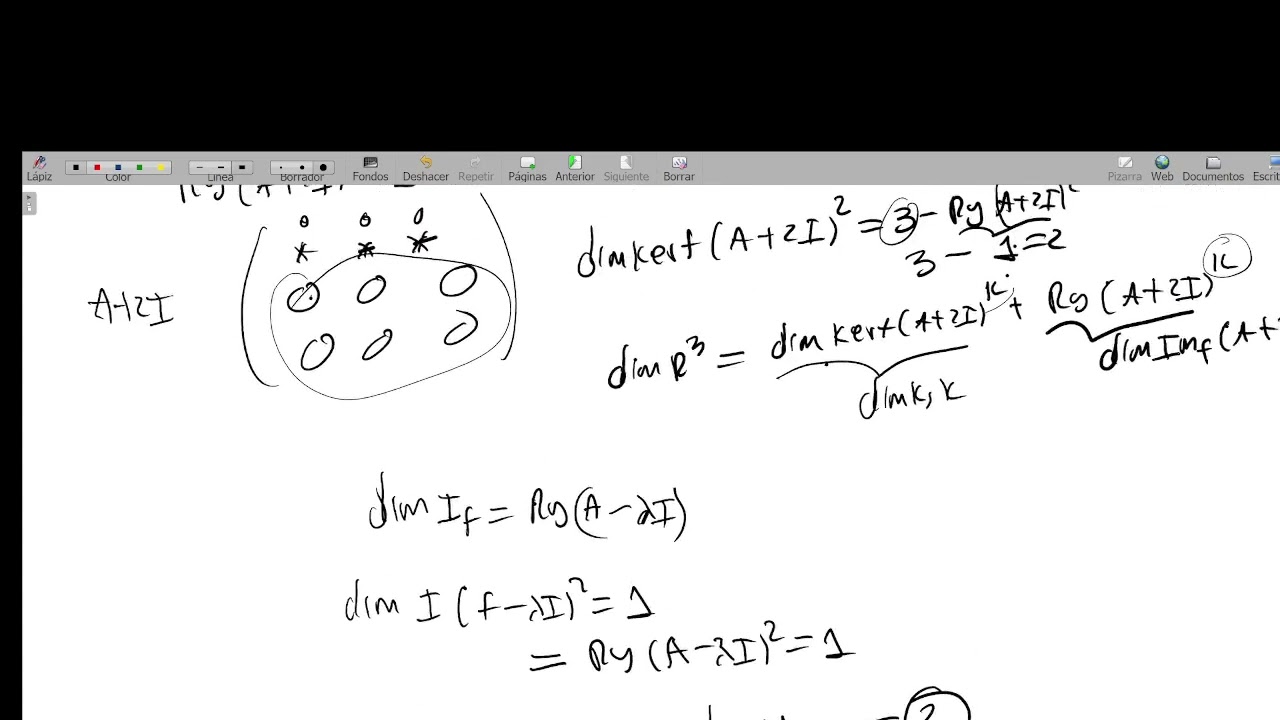 Lápiz Color Línea Borrador Fondos Deshacer Repetir Páginas Anterior Siguiente Borrar Pizarra Web Documentos
dim kerf (A+2I)² = 3 - Rg (A+2I)²
3 - 1 = 2
A+2I
o o o
* * *
0 0 0
0 0 0
dim R³ = dim kerf (A+2I)ᴷ + Rg (A+2I)ᴷ
dim K,K
dim Imf (A+
dim If = Rg (A-λI)
dim I (f-λI)² = 1
= Rg (A-λI)² = 1